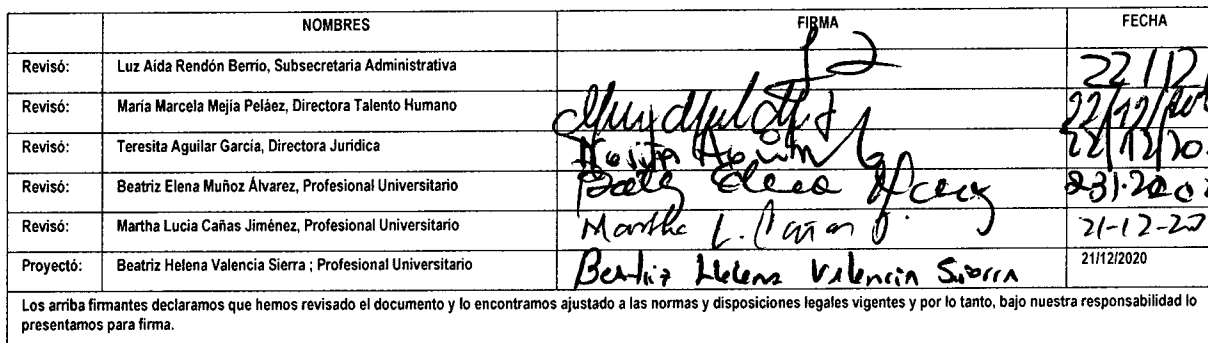 NOMBRES FIRMA FECHA
Revisó: Luz Aida Rendón Berrío, Subsecretaria Administrativa 22/12/
Revisó: María Marcela Mejía Peláez, Directora Talento Humano 22/12/20
Revisó: Teresita Aguilar García, Directora Jurídica 22/12/20
Revisó: Beatriz Elena Muñoz Álvarez, Profesional Universitario
Revisó: Martha Lucia Cañas Jiménez, Profesional Universitario Martha L. Cañas J. 21-12-20
Proyectó: Beatriz Helena Valencia Sierra ; Profesional Universitario Beatriz Helena Valencia Sierra 21/12/2020
Los arriba firmantes declaramos que hemos revisado el documento y lo encontramos ajustado a las normas y disposiciones legales vigentes y por lo tanto, bajo nuestra responsabilidad lo
presentamos para firma.